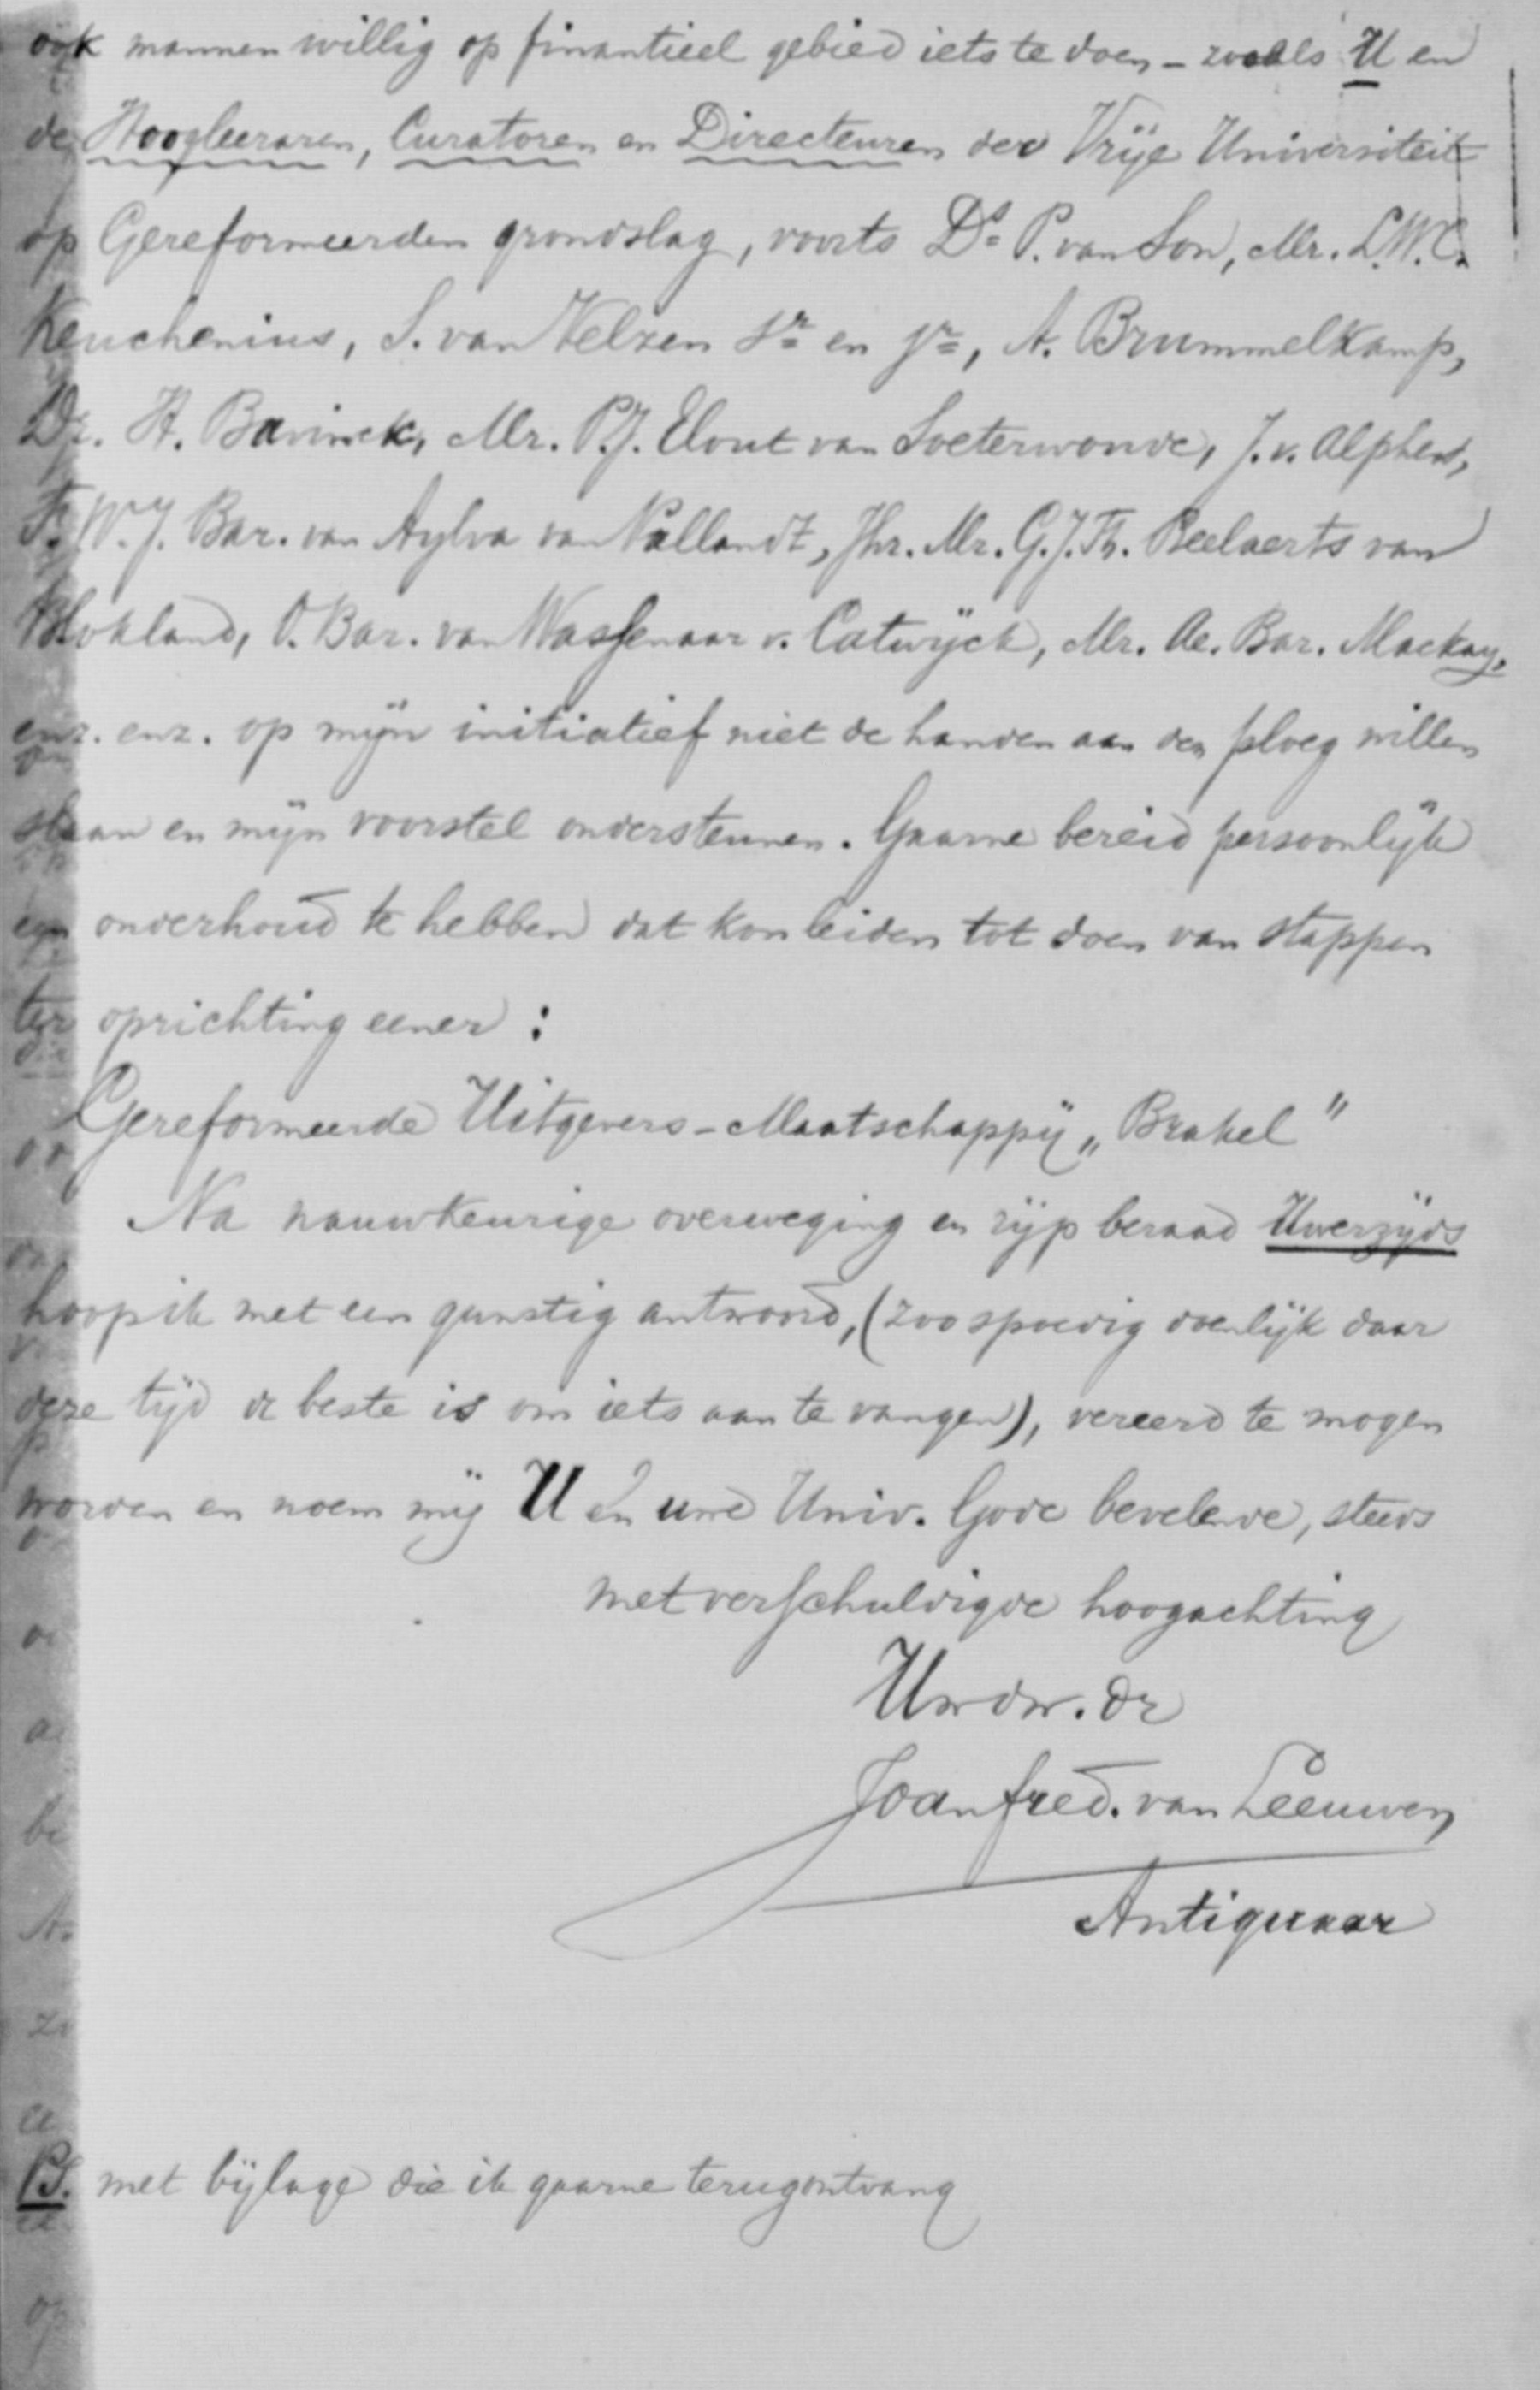 ook mannen willig op finantieel gebied iets te doen - zooals U en
de Hoogleeraren, Curatoren en Directeuren der Vrije Universiteit
op Gereformeerden grondslag, voorts Ds P. van Son, Mr. L.W.C.
Keuchenius, S. van Velzen Sr en Jr, A. Brummelkamp,
Dr. H. Bavinck, Mr. P.J. Elout van Soeterwoude, J. v. Alphen,
F. W. J. Bar. van Aylva van Pallandt, Jhr. Mr. G.J.Th. Beelaerts van
Blokland, O. Bar. van Wassenaar v. Catwijck, Mr. Ae. Bar. Mackay,
enz. enz. op mijn initiatief niet de handen aan den ploeg willen
slaan en mijn voorstel ondersteunen. Gaarne bereid persoonlijk
een onderhoud te hebben dat kon leiden tot doen van stappen
ter oprichting eener :
Gereformeerde Uitgevers-Maatschappij „Brakel"
Na nauwkeurige overweging en rijp beraad Uwerzijds
hoop ik met een gunstig antwoord, (zoo spoedig doenlijk daar
deze tijd de beste is om iets aan te vangen), vereerd te mogen
worden en noem mij U en uwe Univ. Gode bevelende, steeds
met verschuldigde hoogachting
Uwdw. dr
Joan fred. van Leeuwen
Antiquaar
PS. met bijlage die ik gaarne terugontvang